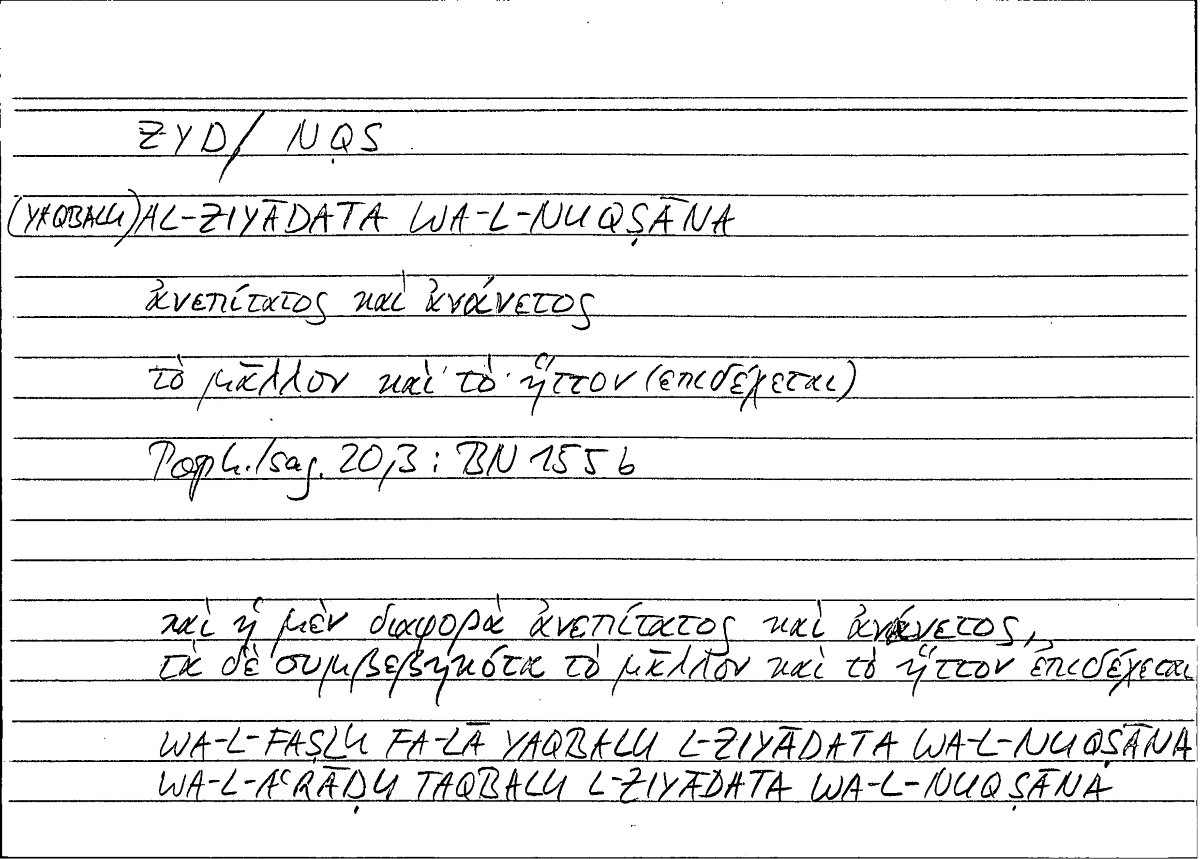 ZYD / NQṢ
(YAQBALU) AL-ZIYĀDATA WA-L-NUQṢĀNA
ἀνεπίτατος καὶ ἀνάνετος
τὸ μᾶλλον καὶ τὸ ἧττον (ἐπιδέχεται)
Porph. Isag. 20,3 : BN 155 b
καὶ ἡ μὲν διαφορὰ ἀνεπίτατος καὶ ἀνάνετος,
τὰ δὲ συμβεβηκότα τὸ μᾶλλον καὶ τὸ ἧττον ἐπιδέχεται
WA-L-FAṢLU FA-LĀ YAQBALU L-ZIYĀDATA WA-L-NUQṢĀNA
WA-L-AʿRĀḌU TAQBALU L-ZIYĀDATA WA-L-NUQṢĀNA